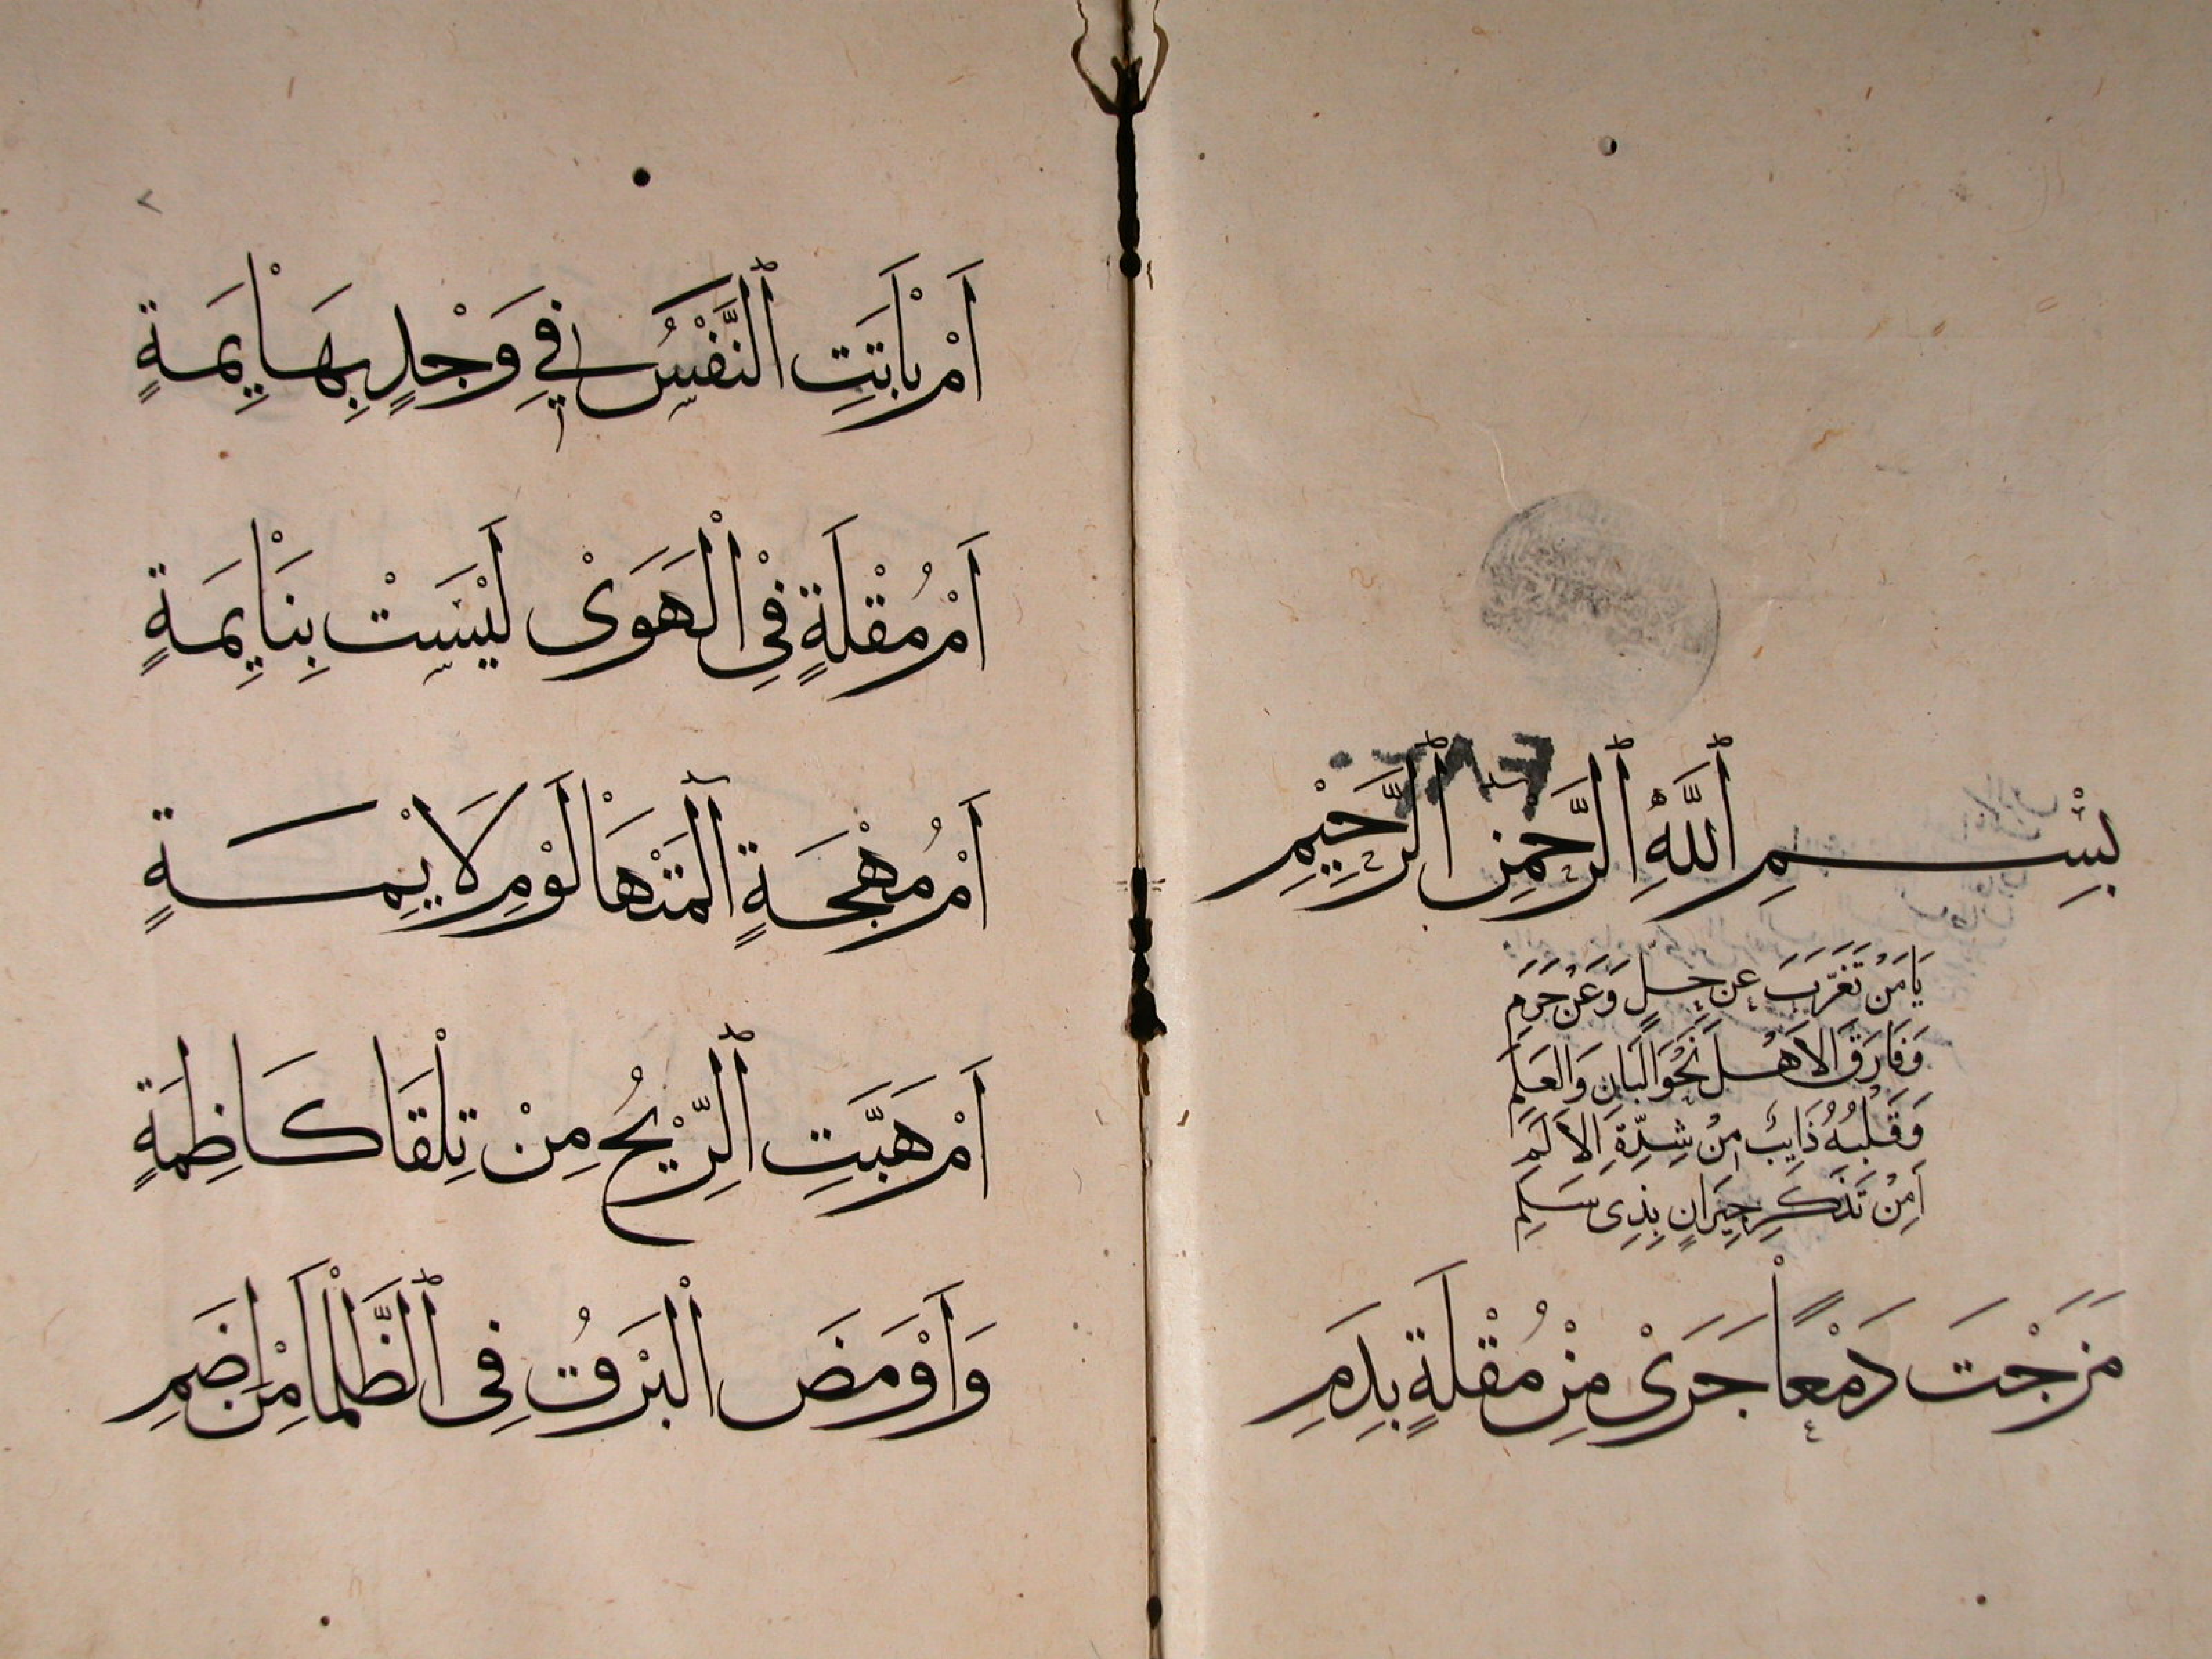 بِسْمِ ٱللَّهِ ٱلرَّحْمٰنِ ٱلرَّحِيْمِ
يَا مَنْ تَغَرَّبَ عَن حِلٍّ وَعَنْ حَرَمِ
وَفَارَقَ الاَهْلَ نَحْوَ الْبَانِ وَالعَلَمِ
وَقَلْبُهُ ذَايِبٌ مِنْ شِدَّةِ الاَلَمِ
اَمِنْ تَذَكُّرِ جِيَرانٍ بِذِى سَلَمِ
مَزَجْتَ دَمْعًا جَرَىْ مِنْ مُقْلَةٍ بِدَمِ
اَمْ بَاْتَتِ ٱلنَّفْسُ فِي وَجْدٍ بِهَاْيِمَةٍ
اَمْ مُقْلَةٍ فِيْ الْهَوَىْ لَيْسَتْ بِنَاْيِمَةٍ
اَمْ مُهْجَةٍ اٰلَمَتْهَاْ لَوْمِ لَايْمَةٍ
اَمْ هَبَّتِ ٱلرِّيْحُ مِنْ تِلْقَا كَاظِمَةٍ
وَاَوْمَضَ الْبَرْقُ فِى ٱلظَّلْمَاْ مِنْ اِضَمِ